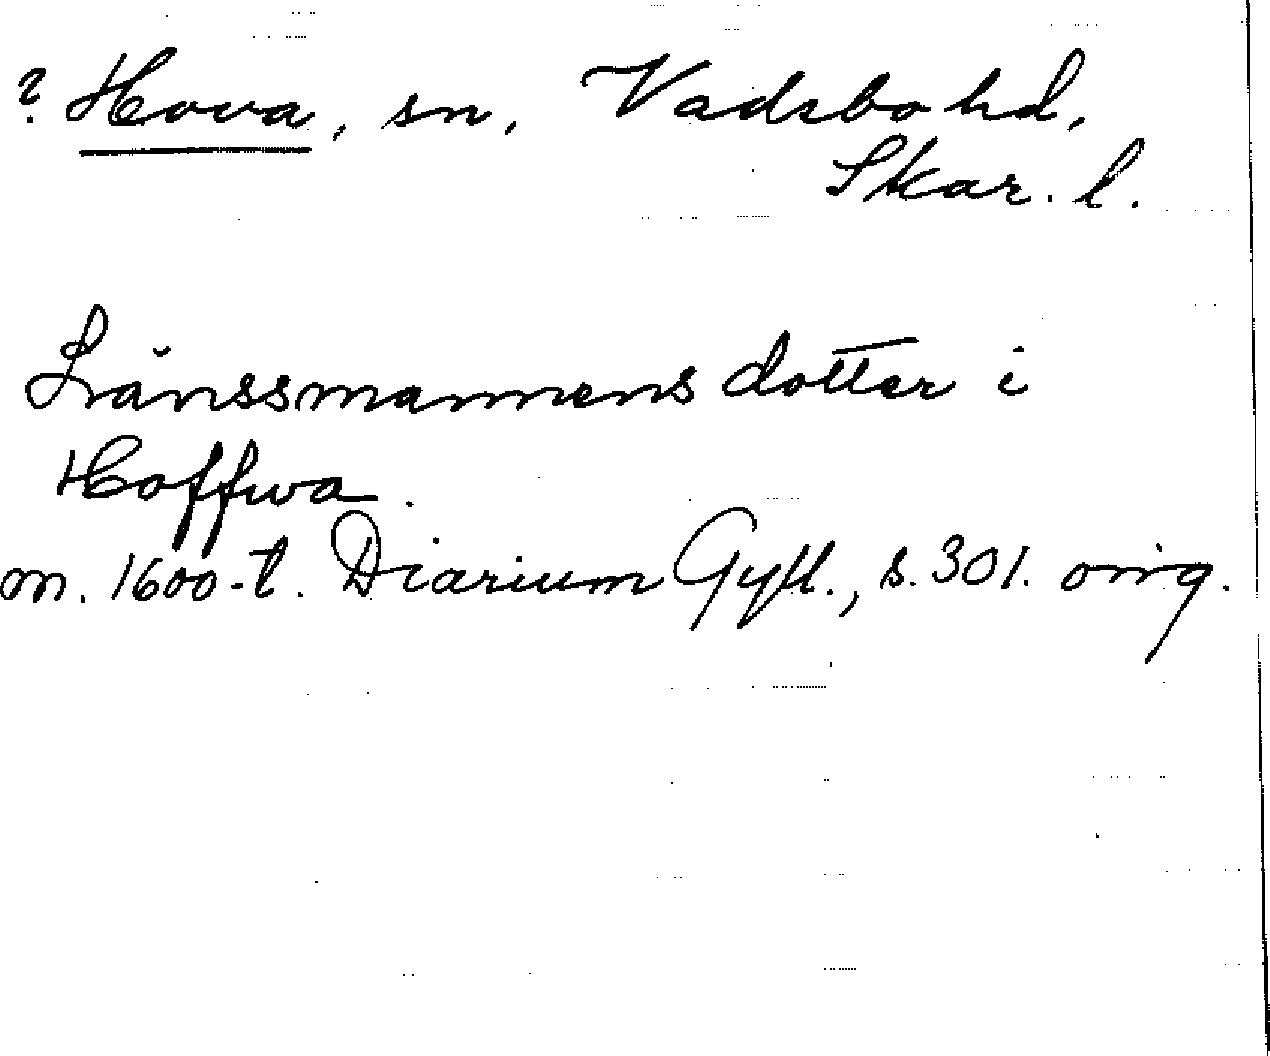 ? Hova, sn, Vadsbo hd,
Skar. l.
Länssmannens dotter i
Hoffwa.
m. 1600-t. Diarium Gyll., s. 301. orig.